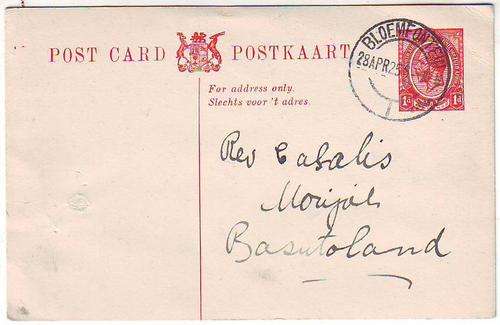 POST CARD POSTKAART
BLOEMFONTEIN
28 APR 25
1d 1d
For address only.
Slechts voor 't adres.
Rev Casalis
Morija
Basutoland